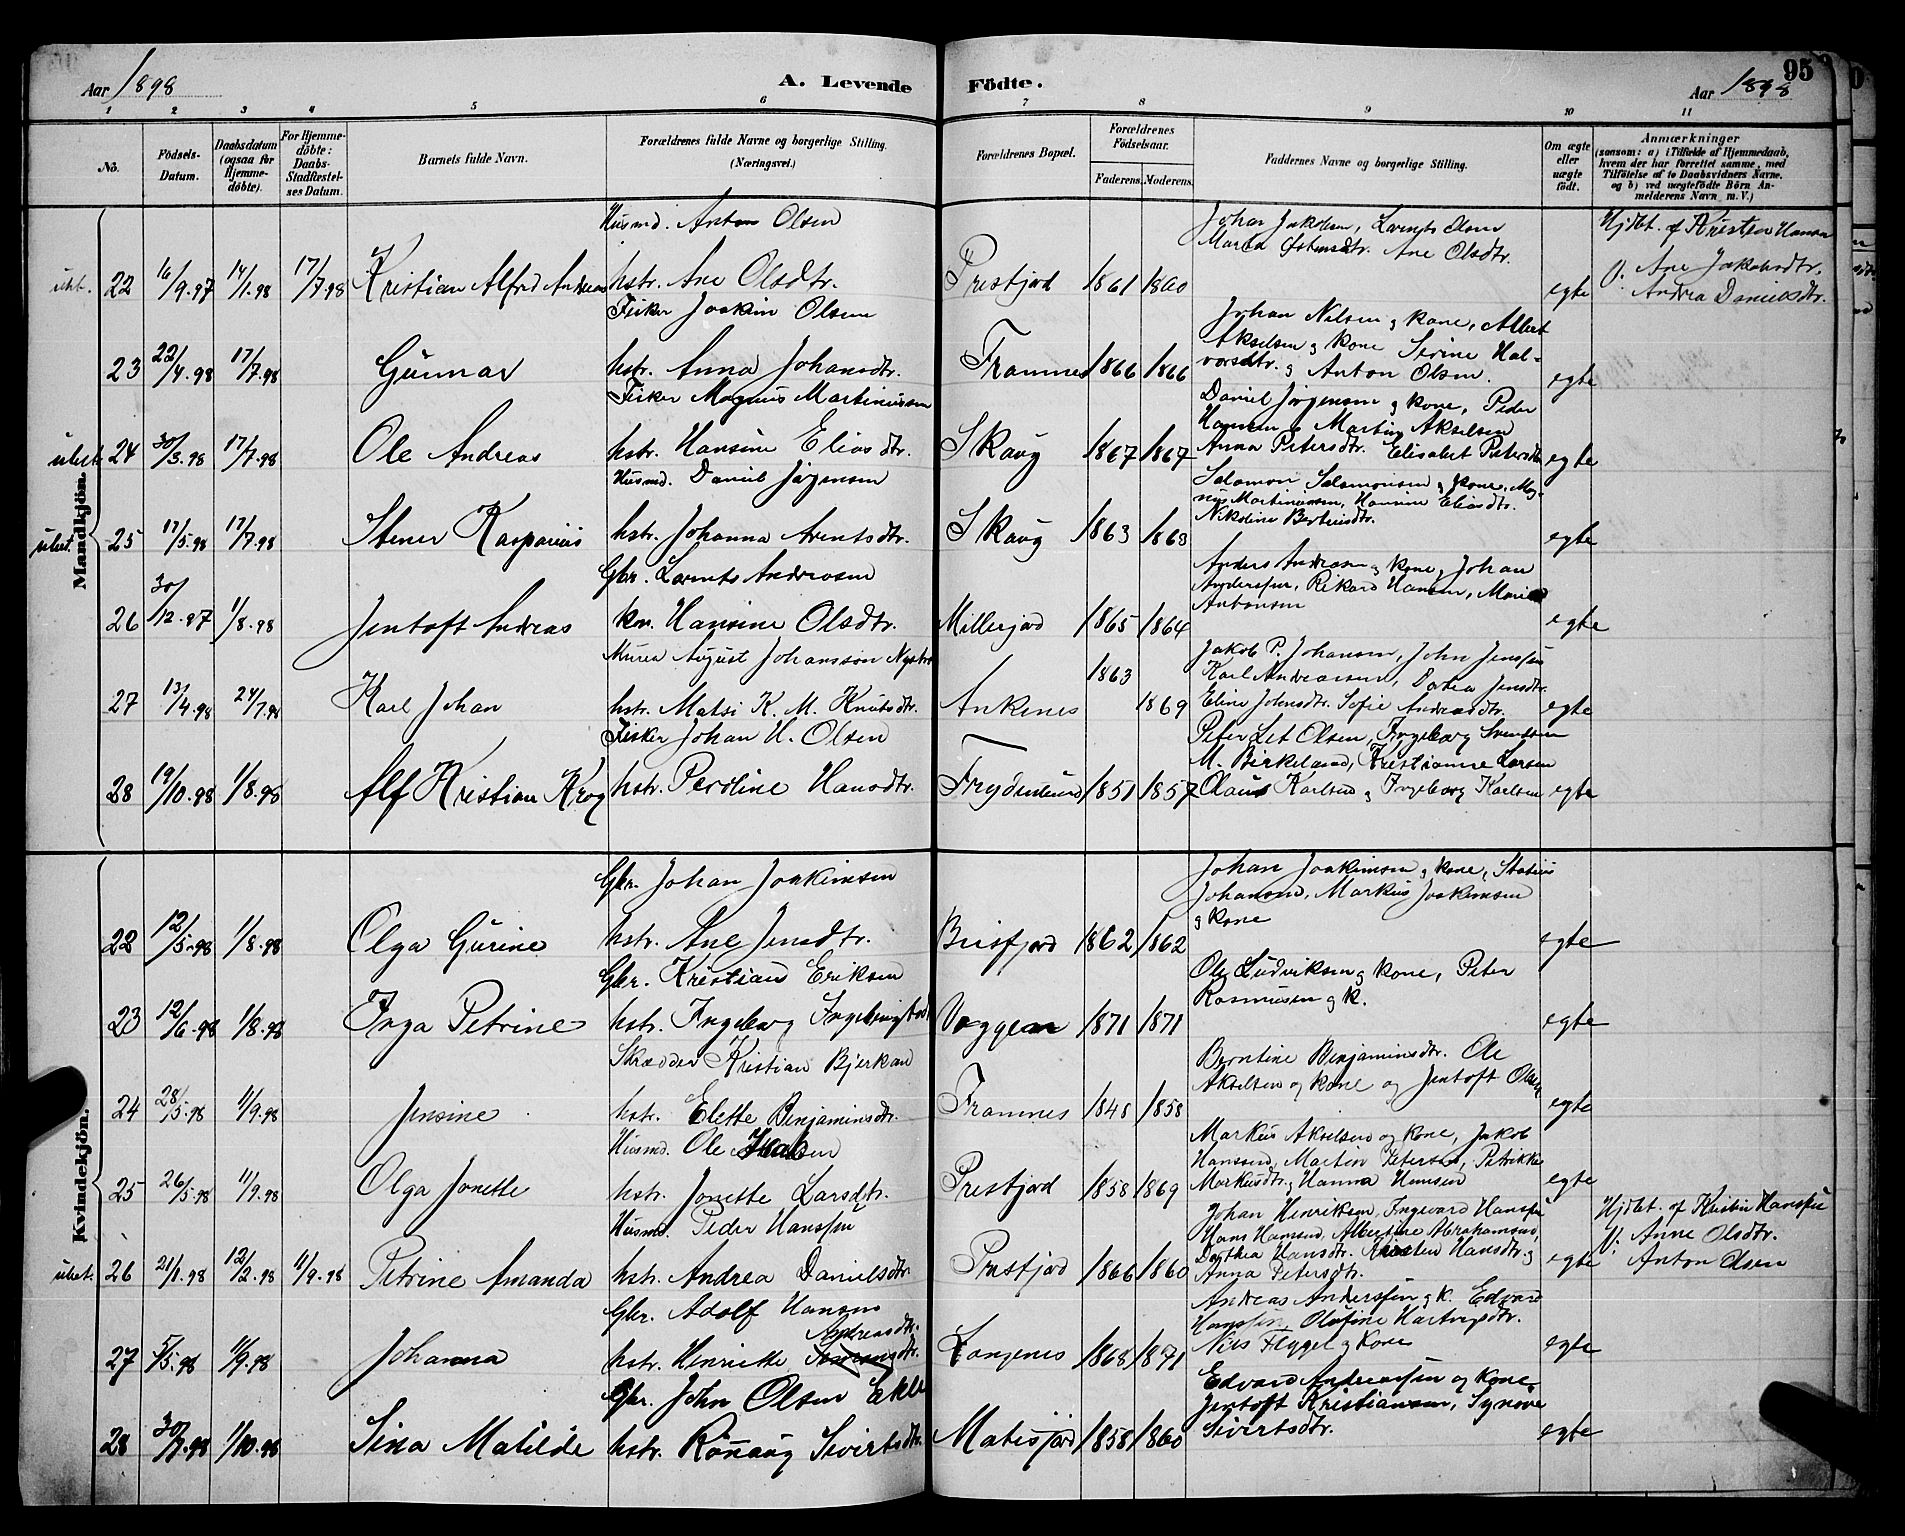 Aar 1898
A. Levende Födte.
Aar 1898
95
1 2 3 4 5 6 7 8 9 10 11
No.
Födsels-Datum.
Daabsdatum (ogsaa for Hjemmedöbte).
For Hjemmedöbte: Daabs-Stadfæstelses Datum.
Barnets fulde Navn.
Forældrenes fulde Navne og borgerlige Stilling. (Næringsvei.)
Forældrenes Bopæl.
Forældrenes Födselsaar.
Faderens. Moderens.
Faddernes Navne og borgerlige Stilling.
Om ægte eller uægte födt.
Anmærkninger
(saasom: a) i Tilfælde af Hjemmedaab, hvem der har forrettet samme, med Tilföielse af to Daabsvidners Navne, og b) ved uægtefödte Börn Anmelderens Navn m. V.)
Mandkjön.
Husmd. Anton Olsen
Johan Jakobsen, Lorents Olsen
Hjdbt. af Kristen Hansen
Maren Ostensdtr. Ane Olsdtr.
V. Ane Jakobsdtr.
22 16/9.97 14/1.98 17/7.98 Kristian Alfred Andreas hstr. Ane Olsdtr. Prestjord 1861 1860 egte
Andrea Danielsdtr.
Fisker Joakim Olsen
Johan Nilsen g kone, Albert
Akselsen g kone Serine Hal-
23 22/4.98 17/7.98 Gunnar hstr. Anna Johansdtr. Framnes 1866 1866 vorsdtr. g Anton Olsen. egte
Fisker Magnus Martinussen
Daniel Jørgensen g kone, Peder
Hansen g Marting Akselsen
24 30/3.98 17/7.98 Ole Andreas hstr. Hansine Eliasdtr. Skaug 1867 1867 Anna Petersdtr. Elisabet Petersdtr egte
Husmd. Daniel Jørgensen
Salomon Salamonsen g kone, Mag-
nus Martinussen, Hansine Eliasdtr.
25 17/5.98 17/7.98 Stener Kasparius hstr. Johanna Arentsdtr. Skaug 1863 1863 Nikoline Bertheusdtr. egte
Gbr. Lorents Andreasen
Anders Andreasen g kone, Johan
Anderssen, Rikard Hansen, Marie
26 30/12.97 1/8.98 Jentoft Andreas kn. Hansine Olsdtr. Millerjord 1865 1864 Antonsen egte
Murer August Johansson Nystrø
Jakob P. Johansen, John Jenssen
Karl Andreassen, Dortea Jensdtr.
27 13/4.98 24/7.98 Karl Johan hstr. Matsi K. M. Knutsdtr. Ankenes 1863 1869 Eline Johnsdtr. Sofie Andreasdtr. egte
Fisker Johan H. Olsen
Peter Let Olsen, Ingeborg Svendsen
M. Birkeland, Kristianne Larsen
28 19/10.98 1/8.98 Alf Kristian Krog hstr. Peroline Hansdtr. Frydenlund 1851 1857 Olaus Karlsen g Ingeborg Karlsen egte
Kvindekjön.
Gbr. Johan Joakimsen
Johan Joakimsen g kone, Statius
Johansen, Markus Joakimsen
g kone
22 12/5.98 1/8.98 Olga Gurine hstr. Ane Jensdtr. Beisfjord 1862 1862 egte
Gbr. Kristian Eriksen
Ole Ludviksen g kone, Peter
Rasmussen g k.
23 12/6.98 1/8.98 Inga Petrine hstr. Ingeborg Vaggen 1871 1871 egte
Skrædder Kristian Bjerkan
Berntine Benjaminsdtr. Ole
Akselsen og kone og Jentoft Olsen
24 28/5.98 11/9.98 Jensine hstr. Elette Benjaminsdtr. Framnes 1848 1858 egte
Husmd. Ole
Markus Akselsen og kone, Jakob
Hanssen, Martin Petersen, Petrikke
25 26/5.98 11/9.98 Olga Jonette hstr. Jonette Larsdtr. Prestjord 1858 1869 Markusdtr. g Hanna Hansen egte
Husmd. Peder Hanssen
Johan Henriksen, Ingevard Hanssen
Hjdbt. af Kristen Hanssen
Hans Hanssen, Albertine Abrahamsen,
V. Anne Olsdtr.
Dorthea Hansdtr. Kristen Hansdtr. g
26 21/1.98 12/2.98 11/9.98 Petrine Amanda hstr. Andrea Danielsdtr. Prestjord 1866 1860 Anna Petersdtr. egte Anton Olsen
Gbr. Adolf Hansen
Andreas Anderssen g k. Edvard
Hanssen, Olufine Hartvigsdtr.
Andreasdtr.
27 5/5.98 11/9.98 Johanna hstr. Henriette Langenes 1868 1871 Nils Flygel g kone egte
Gbr. John Olsen Ekle
Edvard Andreassen og kone
Jentoft Kristiansen, Synøve
28 30/7.98 1/10.98 Sina Matilde hstr. Rönnaug Sivertsdtr. Matisjord 1858 1860 Sivertsdtr. egte